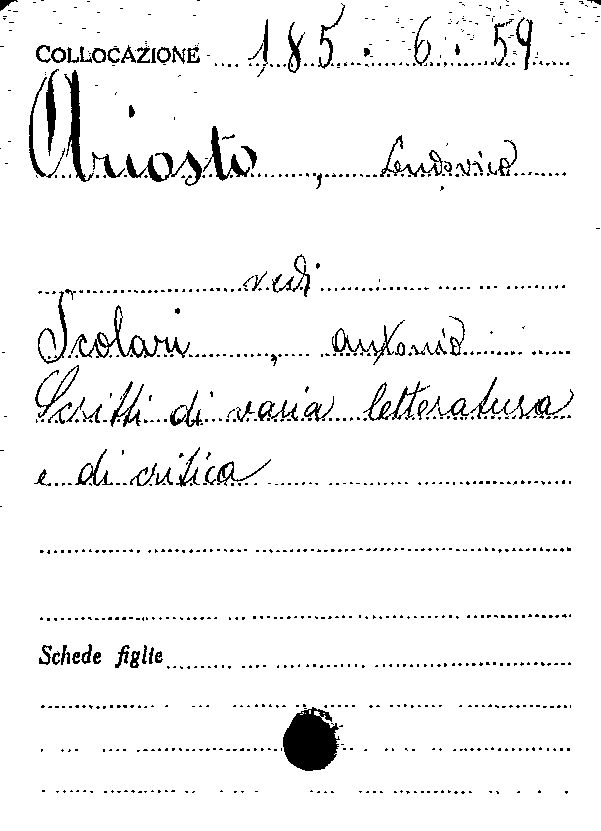 COLLOCAZIONE 185.6.59
Ariosto, Lodovico
vedi
Scolari, Antonio
Scritti di varia letteratura
e di critica
Schede figlie